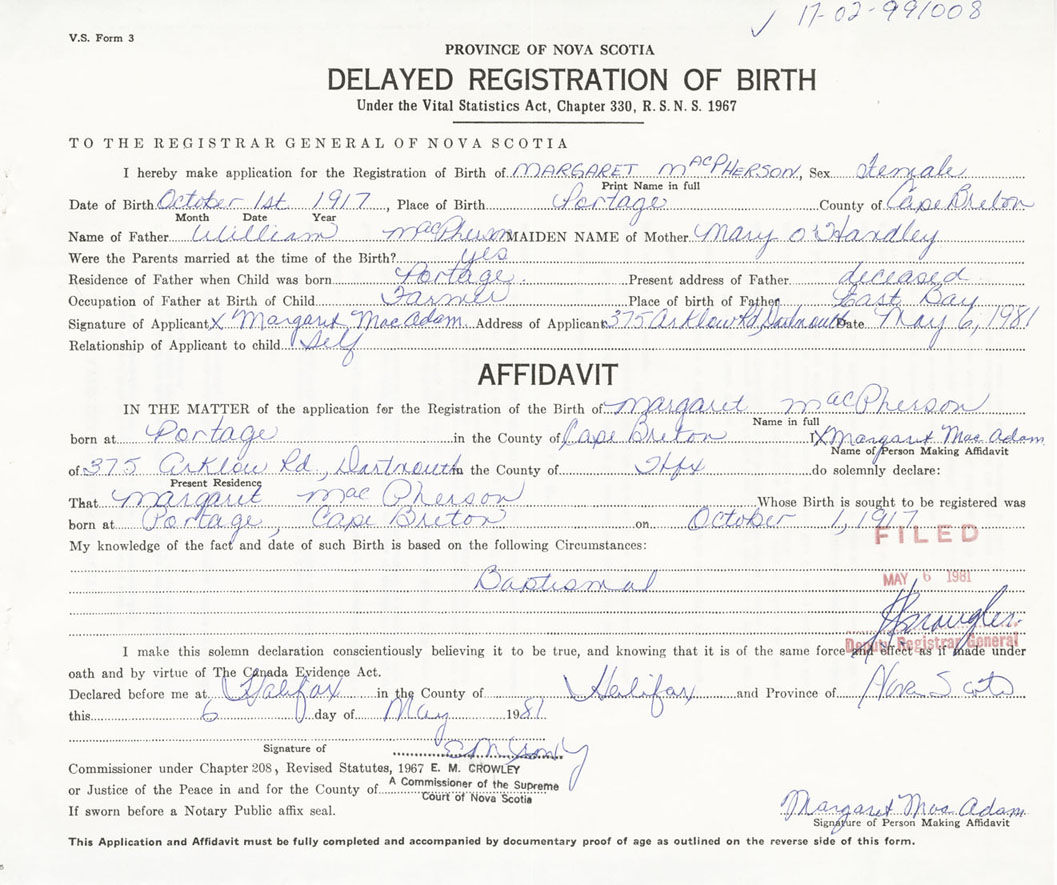 ✓ 17-02-991008
V.S. Form 3
PROVINCE OF NOVA SCOTIA
DELAYED REGISTRATION OF BIRTH
Under the Vital Statistics Act, Chapter 330, R. S. N. S. 1967
TO THE REGISTRAR GENERAL OF NOVA SCOTIA
I hereby make application for the Registration of Birth of MARGARET MACPHERSON, Sex Female
Print Name in full
Date of Birth October 1st 1917, Place of Birth Portage County of Cape Breton
Month Date Year
Name of Father William MacPherson MAIDEN NAME of Mother Mary O'Handley
Were the Parents married at the time of the Birth? yes
Residence of Father when Child was born Portage. Present address of Father deceased
Occupation of Father at Birth of Child Farmer Place of birth of Father East Bay
Signature of Applicant X Margaret MacAdam Address of Applicant 375 Arklow Rd, Dartmouth Date May 6, 1981
Relationship of Applicant to child Self
AFFIDAVIT
IN THE MATTER of the application for the Registration of the Birth of Margaret MacPherson
Name in full
born at Portage in the County of Cape Breton I X Margaret MacAdam
Name of Person Making Affidavit
of 375 Arklow Rd., Dartmouth in the County of Hfx do solemnly declare:
Present Residence
That Margaret MacPherson Whose Birth is sought to be registered was
born at Portage, Cape Breton on October 1, 1917
FILED
My knowledge of the fact and date of such Birth is based on the following Circumstances:
Baptismal
MAY 6 1981
Deputy Registrar General
I make this solemn declaration conscientiously believing it to be true, and knowing that it is of the same force and effect as if made under
oath and by virtue of The Canada Evidence Act.
Declared before me at Halifax in the County of Halifax and Province of Nova Scotia
this 6 day of May 1981
Signature of E M Crowly
Commissioner under Chapter 208, Revised Statutes, 1967 E. M. CROWLEY
or Justice of the Peace in and for the County of A Commissioner of the Supreme
Court of Nova Scotia
If sworn before a Notary Public affix seal.
Margaret MacAdam
Signature of Person Making Affidavit
This Application and Affidavit must be fully completed and accompanied by documentary proof of age as outlined on the reverse side of this form.